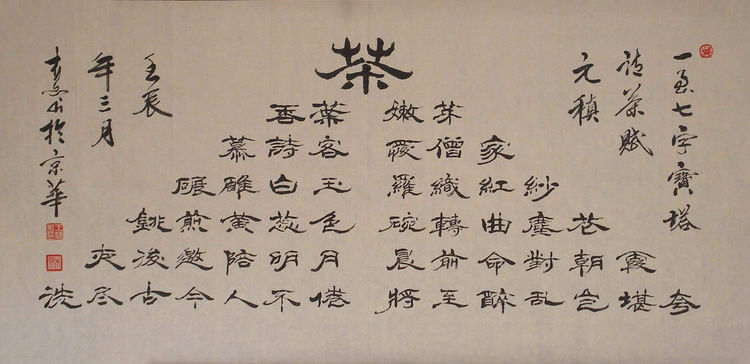 一至七字寶塔
诗茶賦
元稹
茶
香葉嫩芽
慕詩客愛僧家
碾雕白玉羅織紅紗
銚煎黄蕊色碗轉曲塵花
夜後邀陪明月晨前命對朝霞
洗尽古今人不倦將至醉亂豈堪夸
壬辰
年三月
书於京華